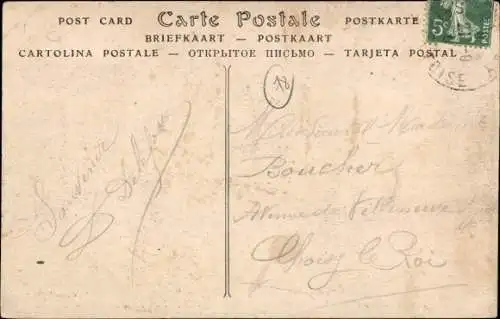 POST CARD Carte Postale POSTKARTE
BRIEFKAART — POSTKAART
CARTOLINA POSTALE — ОТКРЫТОЕ ПИСЬМО — TARJETA POSTAL
5
OISE
18
Souvenir
Monsieur & Madame
Boucher
Avenue de Villeneuve
Choisy le Roi